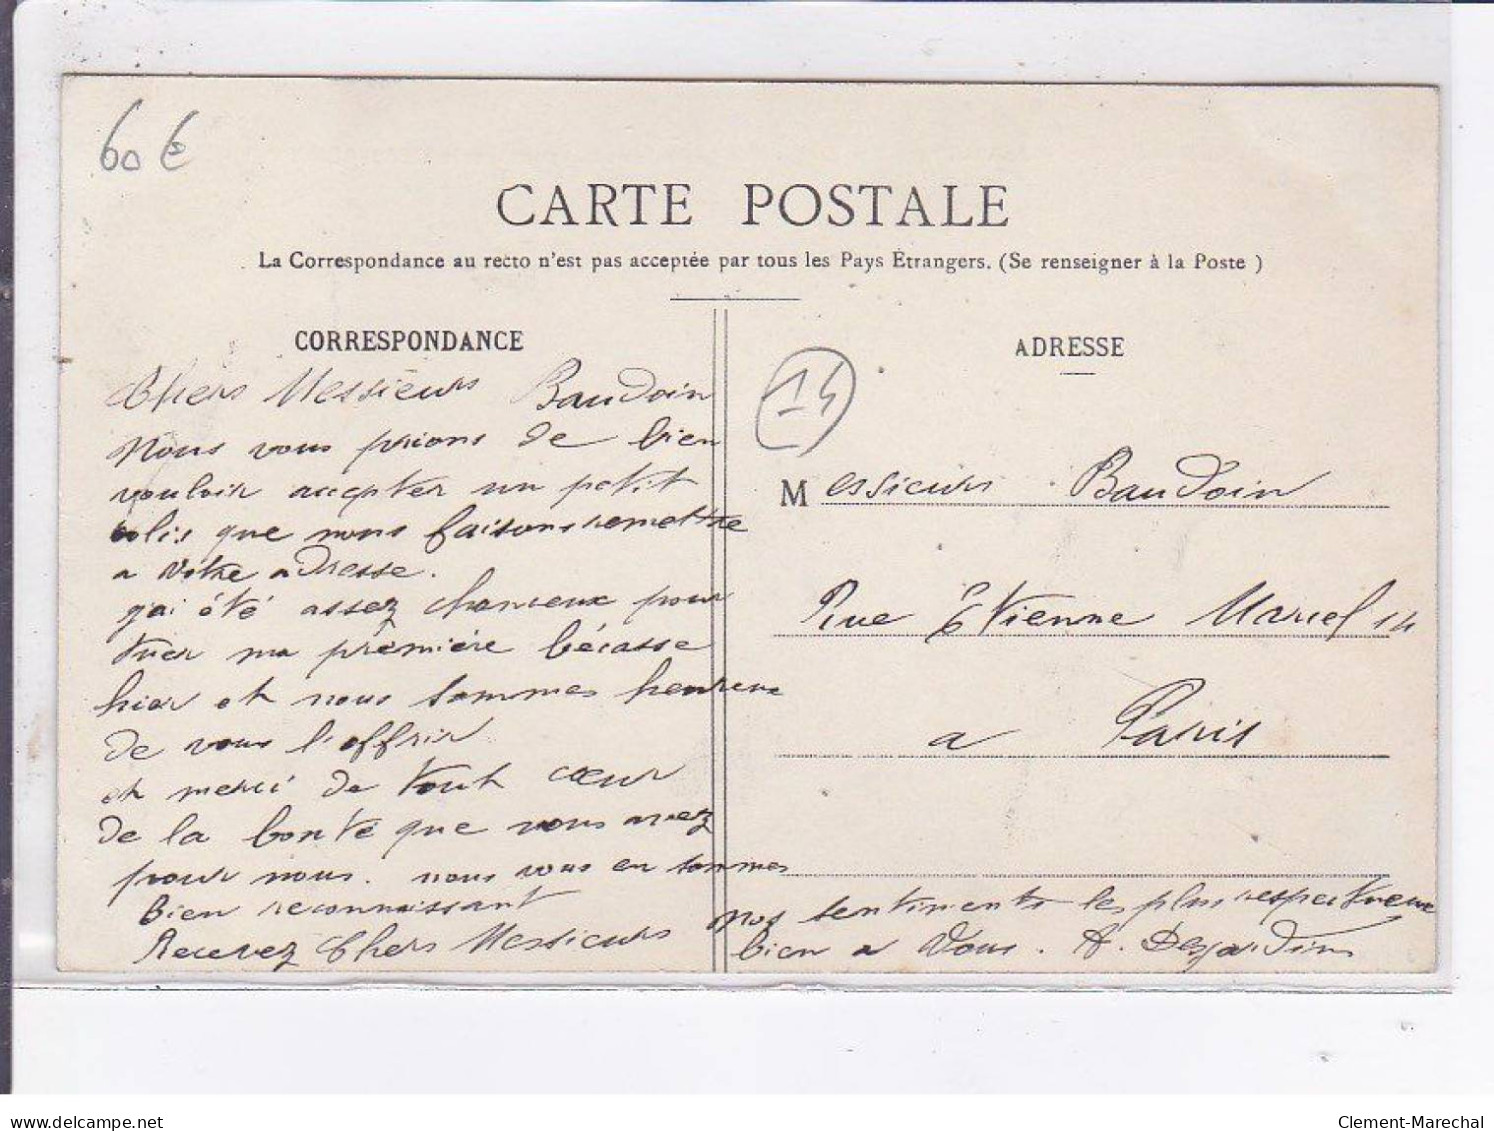 60 €
CARTE POSTALE
La Correspondance au recto n'est pas acceptée par tous les Pays Étrangers. (Se renseigner à la Poste )
CORRESPONDANCE
Chers Messieurs Baudoin
Nous vous prions de bien
vouloir accepter un petit
colis que nous faisons remettre
a votre adresse.
j'ai été assez chanceux pour
tuer ma première bécasse
hier et nous sommes heureux
de vous l'offrir
et merci de tout cœur
de la bonté que vous avez
pour nous. nous vous en sommes
bien reconnaissant
Recevez Chers Messieurs
nos sentiments les plus respectueux
bien a vous. A. Desjardins
14
ADRESSE
Messieurs Baudoin
Rue Etienne Marcel 14
a Paris
delcampe.net
Clement-Marechal